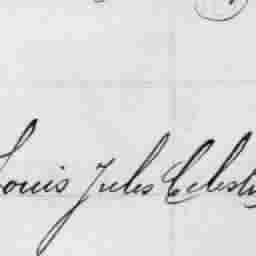 Louis Jules Celesti